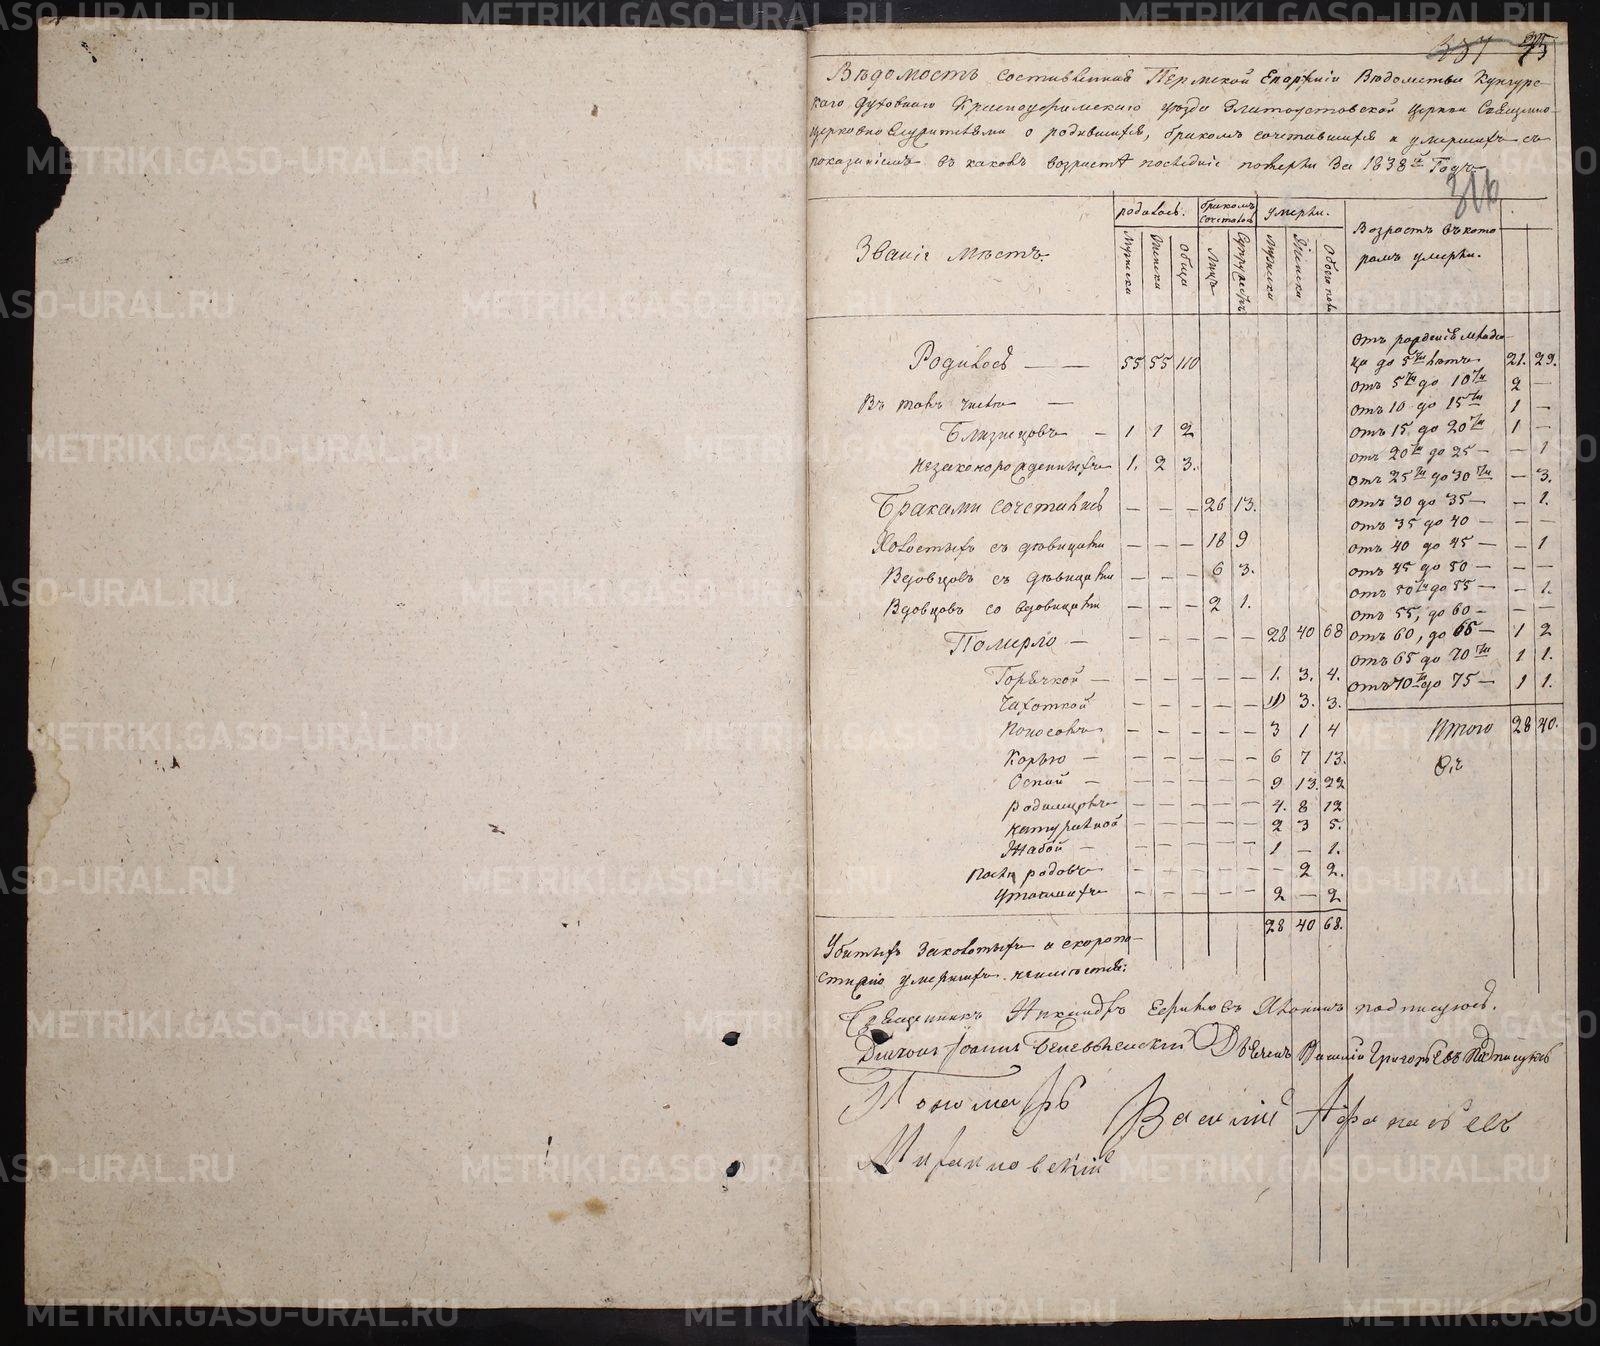 337 25
Вѣдомость составленная Пермской Епархіи Вѣдомства Кунгурс-
каго Духовнаго Красноуфимскаго уѣзда Златоустовской церкви Священно-
церковнослужителями о родившихся, бракомъ сочетавшихся и умершихъ съ
показаніемъ въ какомъ возрастѣ последніе померли За 1838й Годъ
316
родилось. бракомъ сочетались умерли. Возрастъ въ кото-
Званіе Мѣстъ. ромъ умерли.
Мужска Женска Обща Лицъ Супружествъ Мужска Женска Обоего пола
отъ рожденія младен-
Родилось — — 55 55 110 ца до 5ти лѣтъ 21. 29.
отъ 5ти до 10ти 2 —
Въ томъ числѣ — отъ 10 до 15ти 1 —
Близнецовъ — 1 1 2 отъ 15 до 20ти 1 —
отъ 20ти до 25 — — 1
незаконорожденныхъ 1. 2 3. отъ 25ти до 30ти — 3.
Браками сочетались — — — 26 13. отъ 30 до 35 — — 1.
отъ 35 до 40 — — —
Холостыхъ съ дѣвицами — — — 18 9 отъ 40 до 45 — — 1
Вдовцовъ съ дѣвицами — — — 6 3. отъ 45 до 50 — — —
отъ 50ти до 55 — — 1.
Вдовцовъ со вдовицами — — — 2 1. отъ 55, до 60 — — —
Померло — — — — — — 28 40 68 отъ 60, до 65 — 1 2
отъ 65 до 70ти 1 1.
Горячкой — — — — — — 1. 3. 4. отъ 70ти до 75 — 1 1.
Чахоткой — — — — — 3. 3.
Поносомъ — — — — — 3 1 4 Итого 28 40.
Корью — — — — — — 6 7 13.
Оспой — — — — — — 9 13. 22
Родимцомъ — — — — — 4. 8 12
— — — — — 2 3 5.
Жабой — — — — — — 1 — 1.
Послѣ родовъ — — — — — — 2 2.
Утопшихъ — — — — — 2 — 2
28 40 68.
Убитыхъ Заколотыхъ и скоропо-
стижно умершихъ
Священникъ Никандръ подписуюсь.
Діаконъ Іоаннъ Дьячекъ Василій Григорьевъ Подписуюсь
Пономарь Василій Афанасьевъ